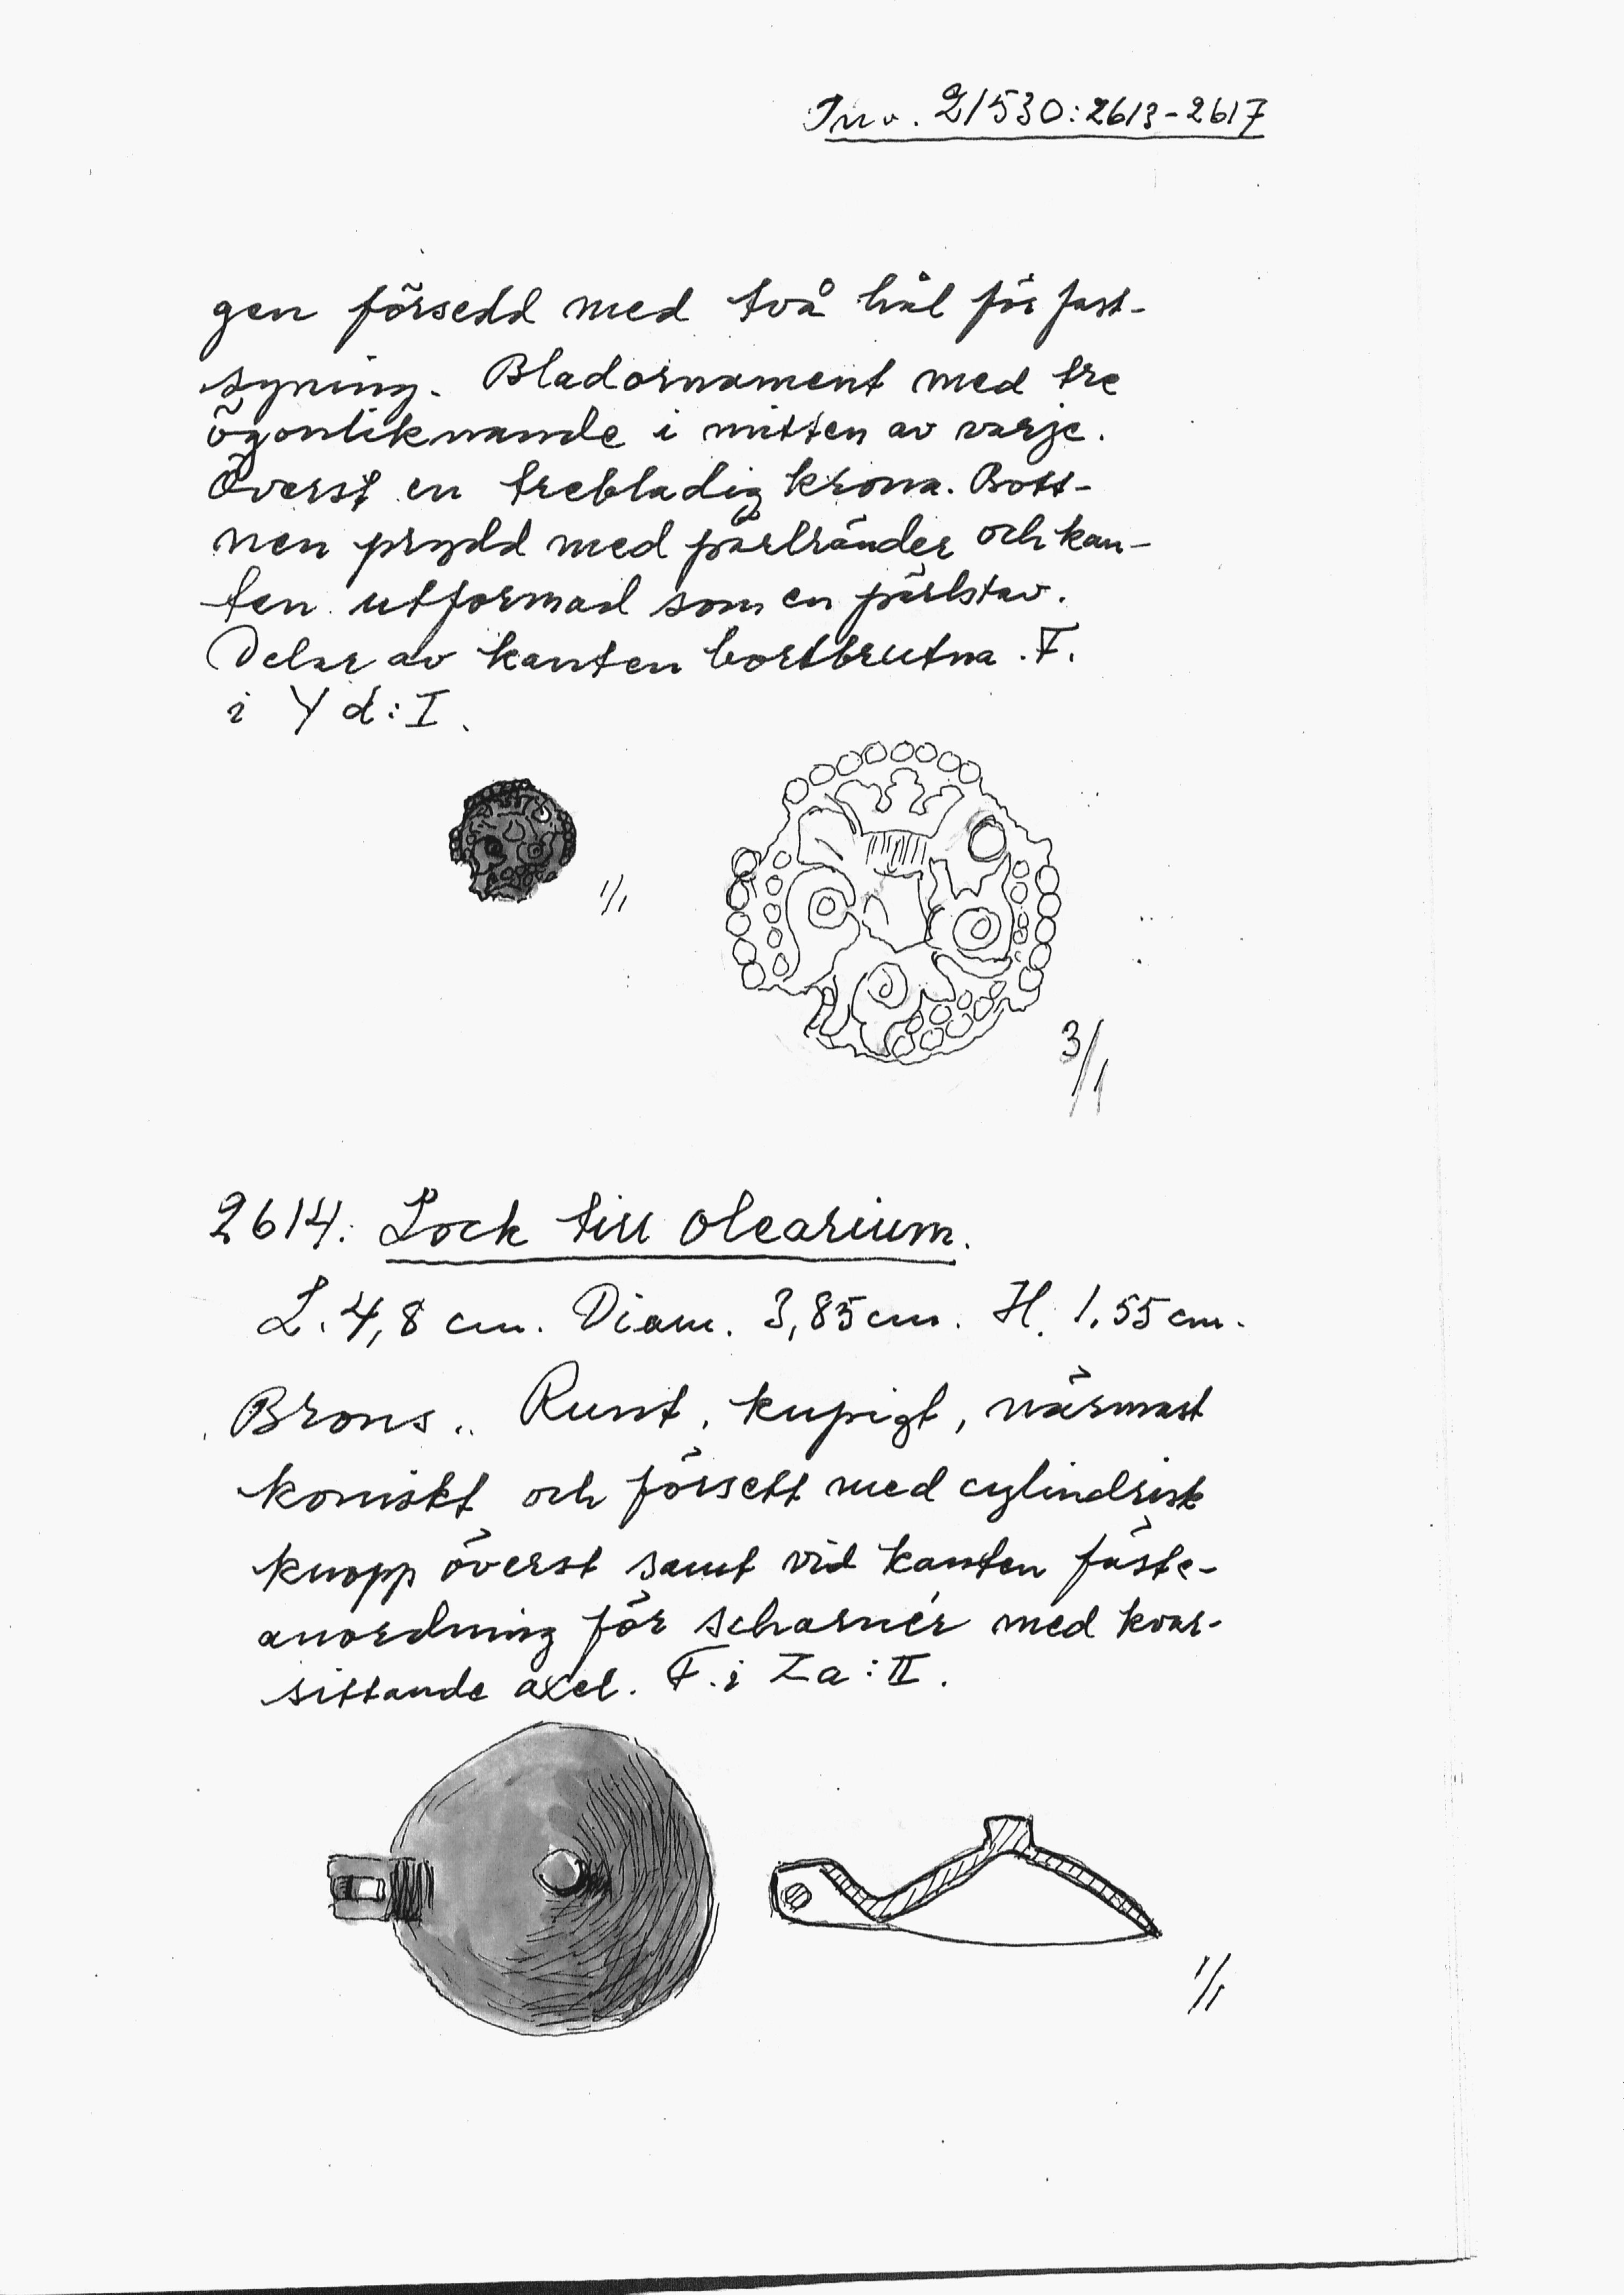 Inv. 21530:2613-2617
gen försedd med två hål för fast-
syning. Bladornament med tre
ögonliknande i mitten av varje.
Överst en trebladig krona. Bott-
nen prydd med pärlränder och kan-
ten utformad som en pärlstav.
Delar av kanten bortbrutna. F.
i Yd:I.
1/1
3/1
2614. Lock till olearium.
L. 4,8 cm. Diam. 3,85 cm. H. 1,55 cm.
Brons. Runt, kupigt, närmast
koniskt och försett med cylindrisk
knopp överst samt vid kanten fäste-
anordning för scharnér med kvar-
sittande axel. F. i Za:II.
1/1